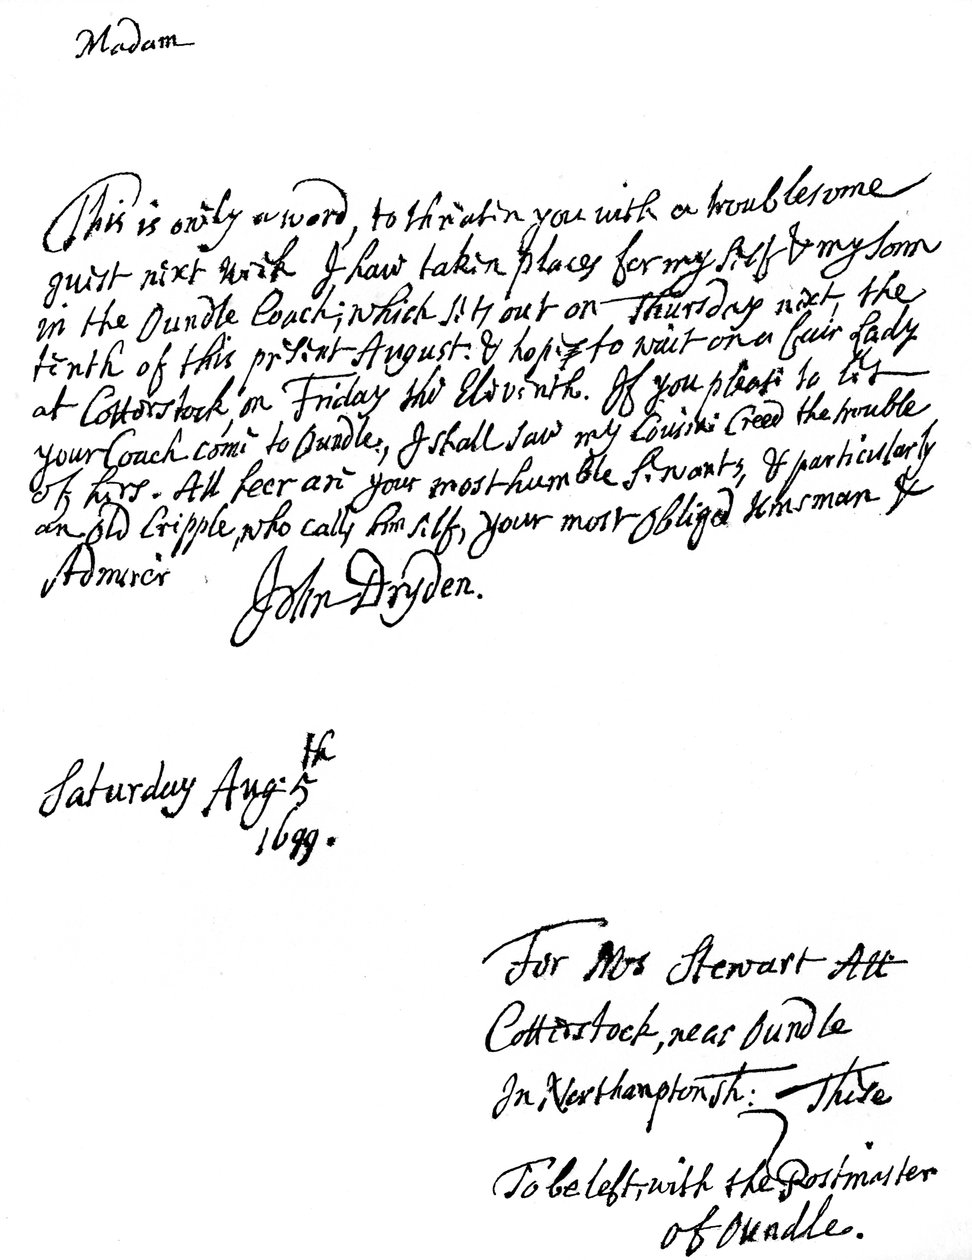 Madam
This is onely a word, to threaten you with a troublesome
guest next week. I have taken places for my self & my sonn
in the Oundle Coach; which sets out on Thursday next, the
tenth of this present August: & hope to wait on a fair Lady
at Cotterstock, on Friday the Eleventh. If you please to let
your Coach come to Oundle, I shall save my Cousine Creed the trouble
of hers. All heer are your most humble Servants, & particularly
an old Cripple, who calls him self, your most obliged Kinsman &
Admirer
John Dryden.
Saturday Aug: 5th
1699.
For Mrs Stewart Att
Cotterstock, near Oundle
In Northamptonsh: These
To be left, with the Postmaster
of Oundle.